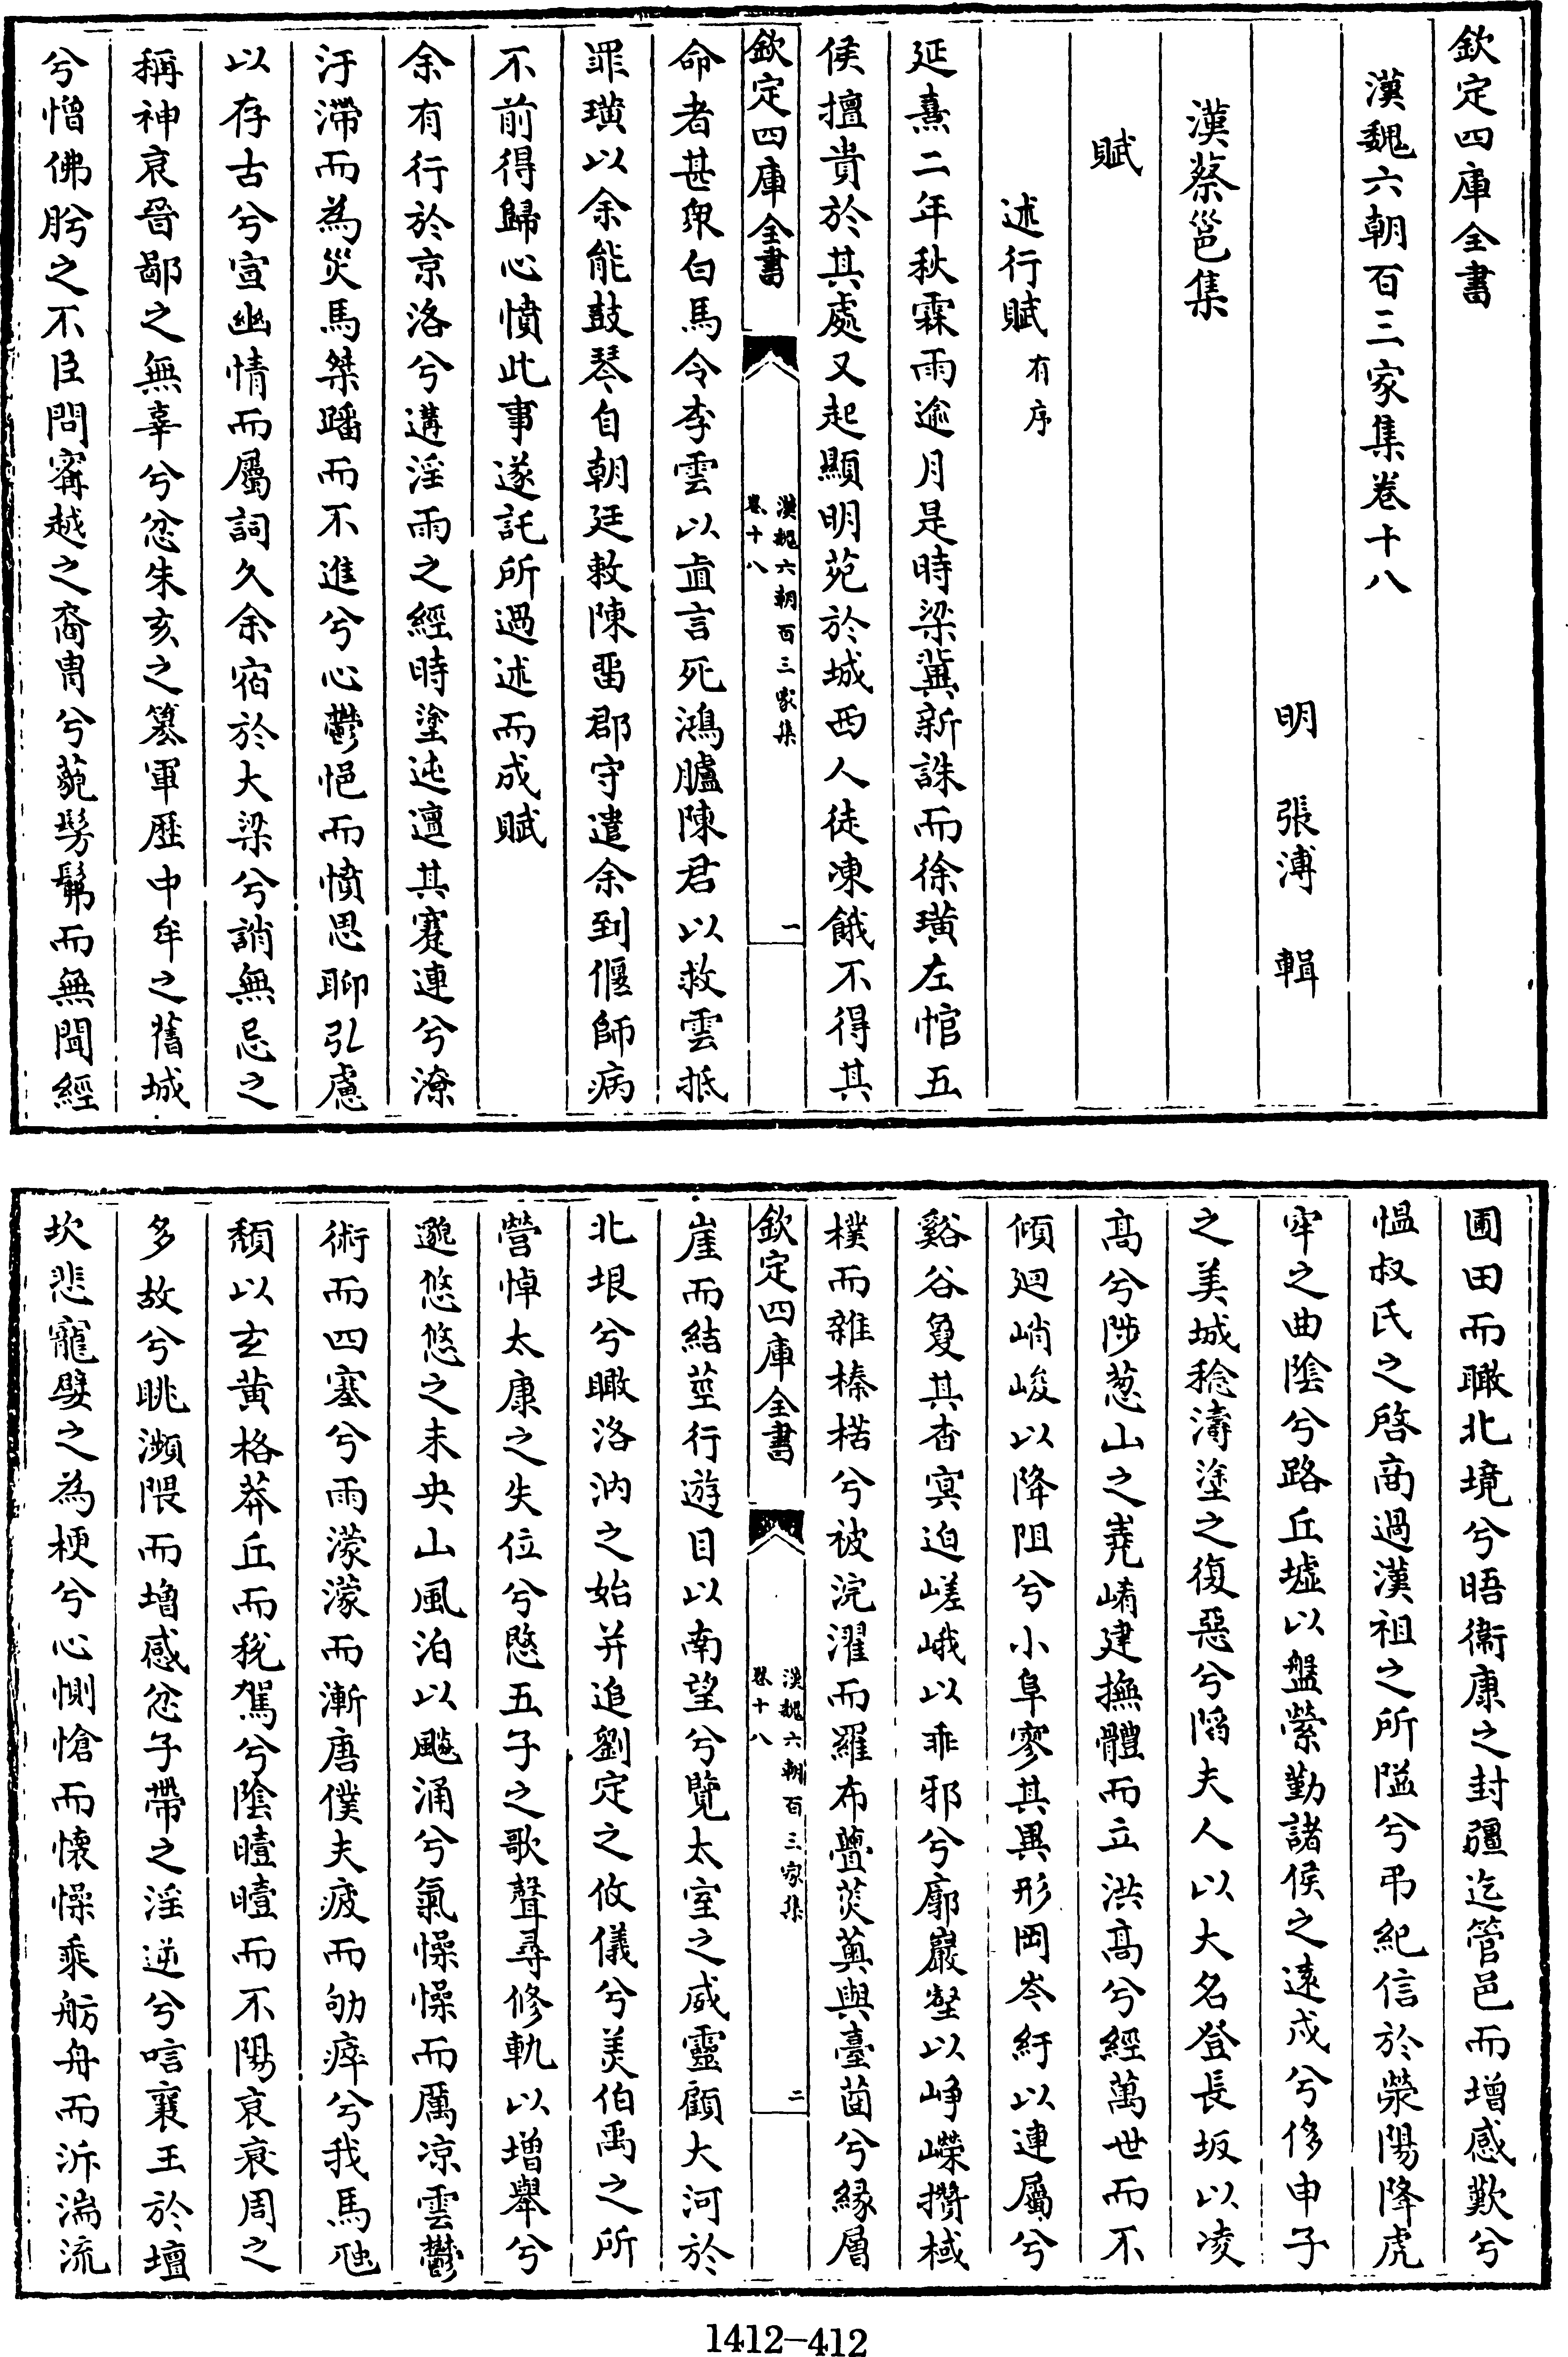 欽定四庫全書
漢魏六朝百三家集卷十八
明　張溥　輯
漢蔡邕集
賦
述行賦有序
延熹二年秋霖雨逾月是時梁冀新誅而徐璜左悺五
侯擅貴於其處又起顯明苑於城西人徒凍餓不得其
欽定四庫全書
漢魏六朝百三家集
卷十八
一
命者甚衆白馬令李雲以直言死鴻臚陳君以救雲抵
罪璜以余能鼓琴自朝廷敕陳留郡守遣余到偃師病
不前得歸心憤此事遂託所過述而成賦
余有行於京洛兮遘淫雨之經時塗迍邅其蹇連兮潦
汙滯而為災馬桀蹯而不進兮心鬱悒而憤思聊弘慮
以存古兮宣幽情而屬詞久余宿於大梁兮誚無忌之
稱神哀晉鄙之無辜兮忿朱亥之篡軍歷中牟之舊城
兮憎佛肸之不臣問甯越之裔冑兮藐髣髴而無聞經
圃田而瞰北境兮晤衞康之封疆迄管邑而增感歎兮
愠叔氏之啓商過漢祖之所隘兮弔紀信於滎陽降虎
牢之曲陰兮路丘墟以盤縈勤諸侯之遠戍兮侈申子
之美城稔濤塗之復惡兮陷夫人以大名登長坂以凌
高兮陟葱山之嶤崝建撫體而立洪高兮經萬世而不
傾迴峭峻以降阻兮小阜寥其異形岡岑紆以連屬兮
谿谷夐其杳冥迫嵯峨以乖邪兮廓巖壑以崢嶸攢棫
樸而雜榛楛兮被浣濯而羅布虋菼薁與臺菌兮緣層
欽定四庫全書
漢魏六朝百三家集
卷十八
二
崖而結莖行遊目以南望兮覽太室之威靈顧大河於
北垠兮瞰洛汭之始并追劉定之攸儀兮美伯禹之所
營悼太康之失位兮愍五子之歌聲尋修軌以增舉兮
邈悠悠之未央山風泊以飈涌兮氣懆懆而厲凉雲鬱
術而四塞兮雨濛濛而漸唐僕夫疲而劬瘁兮我馬虺
頹以玄黄格莽丘而税駕兮陰曀曀而不陽哀衰周之
多故兮眺瀕隈而增感忿子帶之淫逆兮唁襄王於壇
坎悲寵嬖之為梗兮心惻愴而懷懆乘舫舟而泝湍流
1412-412